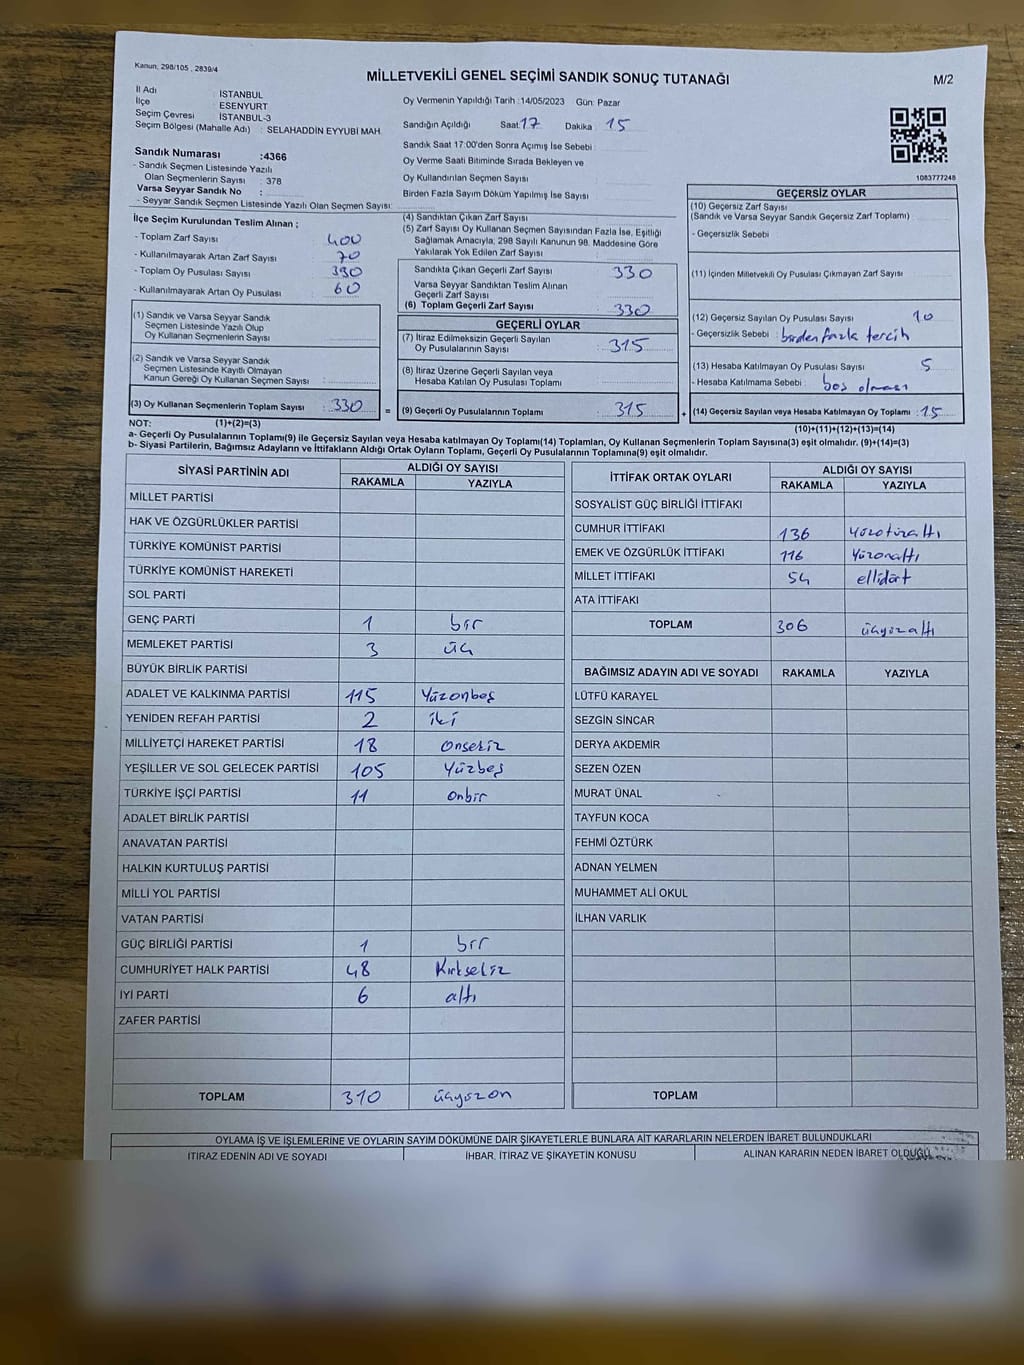 Kanun, 298/105 , 2839/4
MİLLETVEKİLİ GENEL SEÇİMİ SANDIK SONUÇ TUTANAĞI
M/2
İl Adı : İSTANBUL
İlçe : ESENYURT
Seçim Çevresi : İSTANBUL-3
Seçim Bölgesi (Mahalle Adı) : SELAHADDİN EYYUBİ MAH.
Sandık Numarası :4366
- Sandık Seçmen Listesinde Yazılı
Olan Seçmenlerin Sayısı : 378
Varsa Seyyar Sandık No :
- Seyyar Sandık Seçmen Listesinde Yazılı Olan Seçmen Sayısı:
Oy Vermenin Yapıldığı Tarih :14/05/2023 Gün: Pazar
Sandığın Açıldığı Saat:17 Dakika 15
Sandık Saat 17:00'den Sonra Açılmış İse Sebebi
Oy Verme Saati Bitiminde Sırada Bekleyen ve
Oy Kullandırılan Seçmen Sayısı
Birden Fazla Sayım Döküm Yapılmış İse Sayısı
1083777248
İlçe Seçim Kurulundan Teslim Alınan ;
- Toplam Zarf Sayısı 400
- Kullanılmayarak Artan Zarf Sayısı 70
- Toplam Oy Pusulası Sayısı 390
- Kullanılmayarak Artan Oy Pusulası 60
(1) Sandık ve Varsa Seyyar Sandık
Seçmen Listesinde Yazılı Olup
Oy Kullanan Seçmenlerin Sayısı
(2) Sandık ve Varsa Seyyar Sandık
Seçmen Listesinde Kayıtlı Olmayan
Kanun Gereği Oy Kullanan Seçmen Sayısı
(3) Oy Kullanan Seçmenlerin Toplam Sayısı : 330 =
(4) Sandıktan Çıkan Zarf Sayısı
(5) Zarf Sayısı Oy Kullanan Seçmen Sayısından Fazla İse, Eşitliği
Sağlamak Amacıyla, 298 Sayılı Kanunun 98. Maddesine Göre
Yakılarak Yok Edilen Zarf Sayısı
Sandıkta Çıkan Geçerli Zarf Sayısı 330
Varsa Seyyar Sandıktan Teslim Alınan
Geçerli Zarf Sayısı
(6) Toplam Geçerli Zarf Sayısı 330
GEÇERLİ OYLAR
(7) İtiraz Edilmeksizin Geçerli Sayılan
Oy Pusulalarının Sayısı 315
(8) İtiraz Üzerine Geçerli Sayılan veya
Hesaba Katılan Oy Pusulası Toplamı
(9) Geçerli Oy Pusulalarının Toplamı 315 +
GEÇERSİZ OYLAR
(10) Geçersiz Zarf Sayısı
(Sandık ve Varsa Seyyar Sandık Geçersiz Zarf Toplamı)
- Geçersizlik Sebebi
(11) İçinden Milletvekili Oy Pusulası Çıkmayan Zarf Sayısı
(12) Geçersiz Sayılan Oy Pusulası Sayısı 10
- Geçersizlik Sebebi : birden fazla tercih
(13) Hesaba Katılmayan Oy Pusulası Sayısı 5
- Hesaba Katılmama Sebebi : boş olması
(14) Geçersiz Sayılan veya Hesaba Katılmayan Oy Toplamı : 15
NOT: (1)+(2)=(3)
(10)+(11)+(12)+(13)=(14)
a- Geçerli Oy Pusulalarının Toplamı(9) ile Geçersiz Sayılan veya Hesaba katılmayan Oy Toplamı(14) Toplamları, Oy Kullanan Seçmenlerin Toplam Sayısına(3) eşit olmalıdır. (9)+(14)=(3)
b- Siyasi Partilerin, Bağımsız Adayların ve İttifakların Aldığı Ortak Oyların Toplamı, Geçerli Oy Pusulalarının Toplamına(9) eşit olmalıdır.
SİYASİ PARTİNİN ADI ALDIĞI OY SAYISI
RAKAMLA YAZIYLA
MİLLET PARTİSİ
HAK VE ÖZGÜRLÜKLER PARTİSİ
TÜRKİYE KOMÜNİST PARTİSİ
TÜRKİYE KOMÜNİST HAREKETİ
SOL PARTİ
GENÇ PARTİ 1 bir
MEMLEKET PARTİSİ 3 üç
BÜYÜK BİRLİK PARTİSİ
ADALET VE KALKINMA PARTİSİ 115 Yüzonbeş
YENİDEN REFAH PARTİSİ 2 iki
MİLLİYETÇİ HAREKET PARTİSİ 18 onsekiz
YEŞİLLER VE SOL GELECEK PARTİSİ 105 Yüzbeş
TÜRKİYE İŞÇİ PARTİSİ 11 onbir
ADALET BİRLİK PARTİSİ
ANAVATAN PARTİSİ
HALKIN KURTULUŞ PARTİSİ
MİLLİ YOL PARTİSİ
VATAN PARTİSİ
GÜÇ BİRLİĞİ PARTİSİ 1 bir
CUMHURİYET HALK PARTİSİ 48 Kırksekiz
İYİ PARTİ 6 altı
ZAFER PARTİSİ
TOPLAM 310 üçyüzon
İTTİFAK ORTAK OYLARI ALDIĞI OY SAYISI
RAKAMLA YAZIYLA
SOSYALİST GÜÇ BİRLİĞİ İTTİFAKI
CUMHUR İTTİFAKI 136 yüzotuzaltı
EMEK VE ÖZGÜRLÜK İTTİFAKI 116 Yüzonaltı
MİLLET İTTİFAKI 54 ellidört
ATA İTTİFAKI
TOPLAM 306 üçyüzaltı
BAĞIMSIZ ADAYIN ADI VE SOYADI RAKAMLA YAZIYLA
LÜTFÜ KARAYEL
SEZGİN SİNCAR
DERYA AKDEMİR
SEZEN ÖZEN
MURAT ÜNAL
TAYFUN KOCA
FEHMİ ÖZTÜRK
ADNAN YELMEN
MUHAMMET ALİ OKUL
İLHAN VARLIK
TOPLAM
OYLAMA İŞ VE İŞLEMLERİNE VE OYLARIN SAYIM DÖKÜMÜNE DAİR ŞİKAYETLERLE BUNLARA AİT KARARLARIN NELERDEN İBARET BULUNDUKLARI
İTİRAZ EDENİN ADI VE SOYADI İHBAR, İTİRAZ VE ŞİKAYETİN KONUSU ALINAN KARARIN NEDEN İBARET OLDUĞU